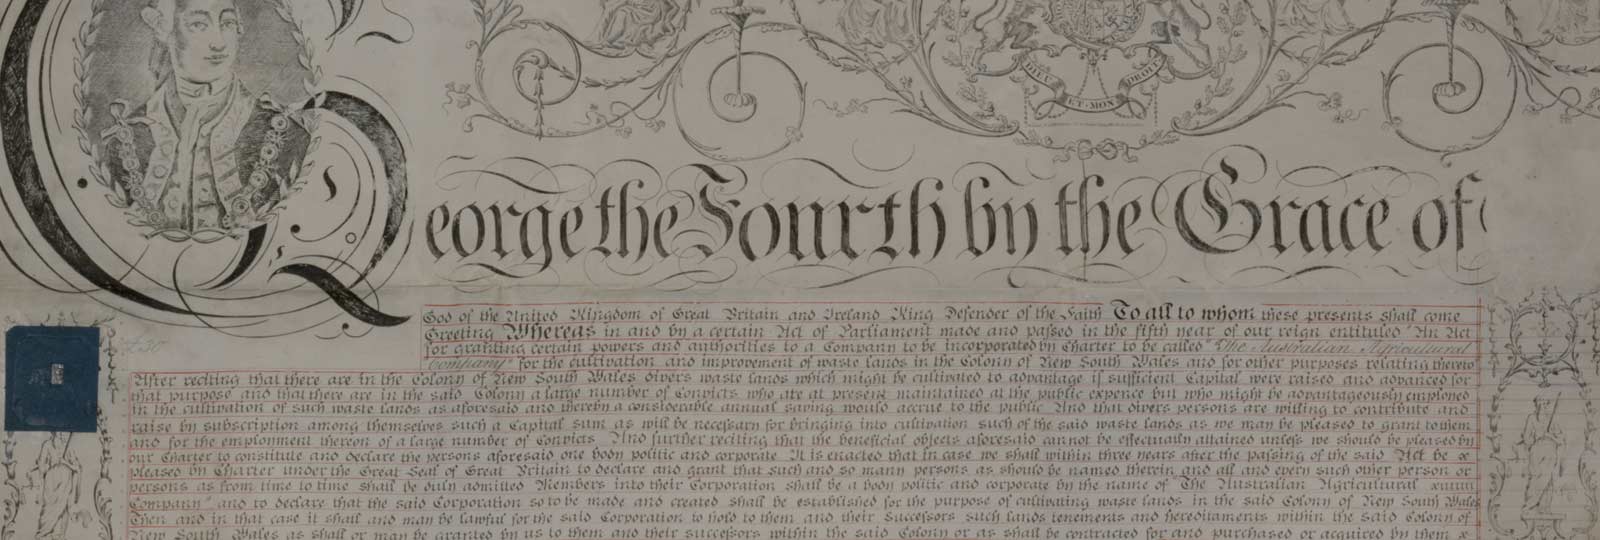 DIEU ET MON DROIT
George the Fourth by the Grace of
God of the United Kingdom of Great Britain and Ireland King Defender of the Faith To all to whom these presents shall come
Greeting Whereas in and by a certain Act of Parliament made and passed in the fifth year of our reign entituled "An Act
for granting certain powers and authorities to a Company to be incorporated by Charter to be called "The Australian Agricultural
Company" for the cultivation and improvement of waste lands in the Colony of New South Wales and for other purposes relating thereto
After reciting that there are in the Colony of New South Wales divers waste lands which might be cultivated to advantage if sufficient Capital were raised and advanced for
that purpose and that there are in the said Colony a large number of Convicts who are at present maintained at the public expence but who might be advantageously employed
in the cultivation of such waste lands as aforesaid and thereby a considerable annual saving would accrue to the public And that divers persons are willing to contribute and
raise by subscription among themselves such a Capital sum as will be necessary for bringing into cultivation such of the said waste lands as we may be pleased to grant to them
and for the employment thereon of a large number of Convicts And further reciting that the beneficial objects aforesaid cannot be effectually attained unless we should be pleased by
our Charter to constitute and declare the persons aforesaid one body politic and corporate It is enacted that in case we shall within three years after the passing of the said Act be
pleased by Charter under the Great Seal of Great Britain to declare and grant that such and so many persons as should be named therein and all and every such other person or
persons as from time to time shall be duly admitted Members into their Corporation shall be a body politic and corporate by the name of "The Australian Agricultural
Company" and to declare that the said Corporation so to be made and created shall be established for the purpose of cultivating waste lands in the said Colony of New South Wales
Then and in that case it shall and may be lawful for the said Corporation to hold to them and their successors such lands tenements and hereditaments within the said Colony of
New South Wales as shall or may be granted by us to them and their successors within the said Colony or as shall be contracted for and purchased or acquired by them